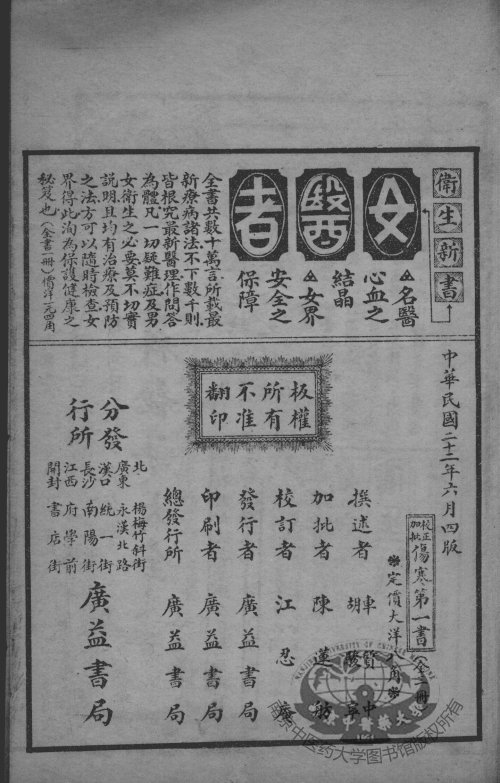 衛生新書
女醫者
▲名醫
心血之
結晶
▲女界
安全之
保障
全書共數十萬言所載最
新療病諸法不下數千則
皆根究最新醫理作問答
為體凡一切疑難症及男
女衛生之必要莫不切實
說明且均有治療及預防
之法方可以隨時檢查女
界得此洵為保護健康之
秘笈也(全書一冊)價洋一元四角
中華民國二十二年六月四版
校正
加批
傷寒第一書
(全一冊)
定價大洋
角
板權
所有
不准
翻印
撰述者 車質中
胡騐中
加批者 陳蓮舫
校訂者 江忍庵
發行者 廣益書局
印刷者 廣益書局
總發行所 廣益書局
分發
行所
北 楊梅竹斜街
廣東 永漢北路
漢口 統一街
長沙 南陽街
江西 府學前
開封 書店街
廣益書局
南京中醫藥大學
NANJING UNIVERSITY OF CHINESE MEDICINE
南京中医药大学图书馆版权所有